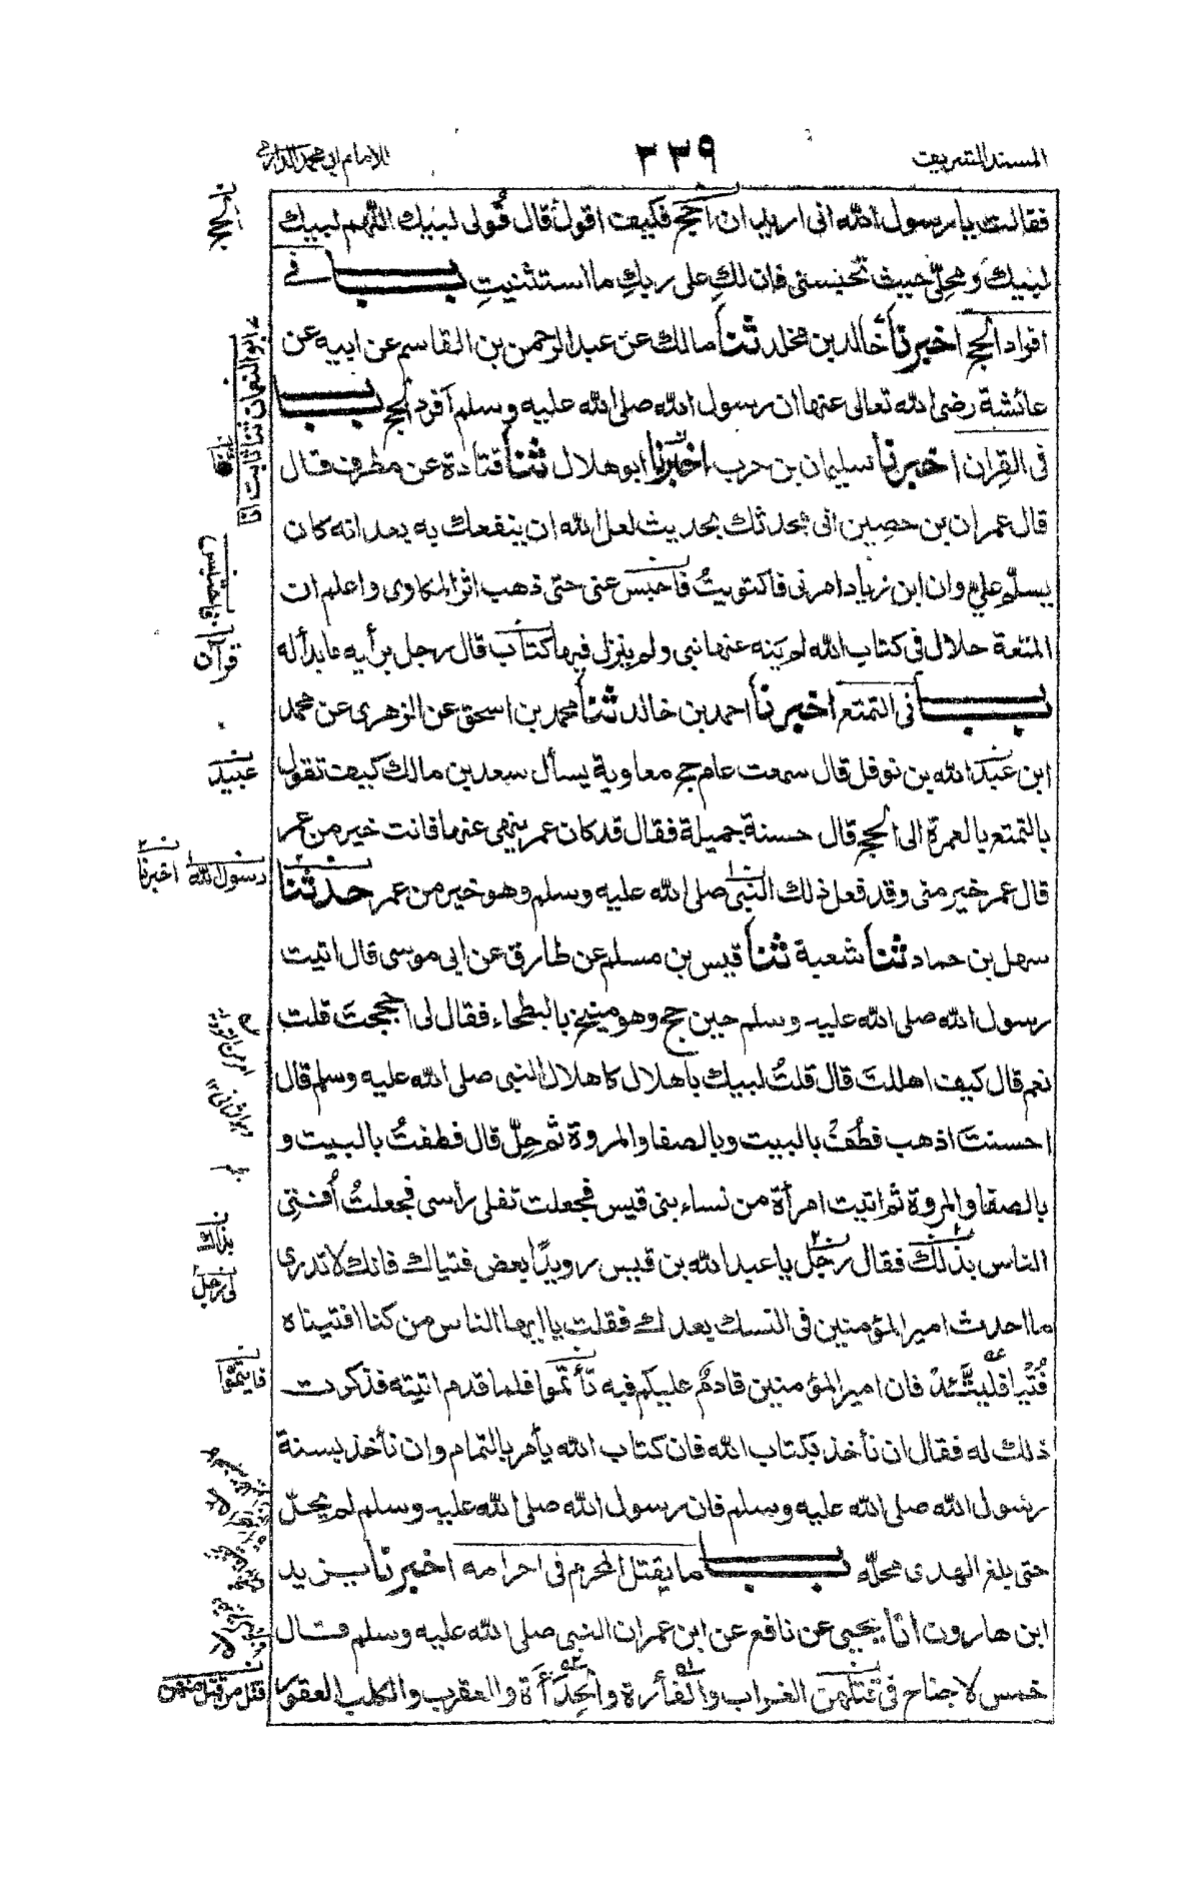 المسند الشريف
٣٣٩
للامام ابي محمد الدارمي
فقالت يا رسول الله انى اريد ان احج فكيف اقول قال قُولى لبيك اللهم لبيك
لبيك ومحِلّى حيث تحبسنى فان لكِ على ربكِ ما استثنيتِ باب فى
افراد الحج اخبرنا خالد بن مخلد ثنا مالك عن عبد الرحمن بن القاسم عن ابيه عن
عائشة رضى الله تعالى عنها ان رسول الله صلى الله عليه وسلم افرد الحج باب
فى القِران اخبرنا سليمان بن حرب اخبرنا ابو هلال ثنا قتادة عن مطرف قال
قال عمران بن حصين انى محدثك بحديث لعل الله ان ينفعك به بعد انه كان
يسلَّم علىّ وان ابن زياد امرنى فاكتويتُ فاحبس عنى حتى ذهب اثر المكاوى واعلم ان
المتعة حلال فى كتاب الله لم يَنه عنها نبى ولم ينزل فيها كتاب قال رجل برأيه ما بدأ له
باب فى التمتع اخبرنا احمد بن خالد ثنا محمد بن اسحق عن الزهرى عن محمد
ابن عبد الله بن نوفل قال سمعت عام حج معاوية يسأل سعد بن مالك كيف تقول
بالتمتع بالعمرة الى الحج قال حسنة جميلة فقال قد كان عمر ينهى عنها فانت خير من عمر
قال عمر خير منى وقد فعل ذلك النبى صلى الله عليه وسلم وهو خير من عمر حدثنا
سهل بن حماد ثنا شعبة ثنا قيس بن مسلم عن طارق عن ابى موسى قال اتيت
رسول الله صلى الله عليه وسلم حين حج وهو منيخ بالبطحاء فقال لى احججتَ قلت
نعم قال كيف اهللتَ قال قلتُ لبيك باهلال كاهلال النبى صلى الله عليه وسلم قال
احسنتَ اذهب فطُفْ بالبيت وبالصفا والمروة ثم حِلّ قال فطفتُ بالبيت و
بالصفا والمروة ثم اتيت امرأة من نساء بنى قيس فجعلت تفلى رأسى فجعلتُ اُفتِى
الناس بذلك فقال رجل يا عبد الله بن قيس رويدًا بعض فتياك فانك لا تدرى
ما احدث امير المؤمنين فى النسك بعدك فقلت يا ايها الناس من كنا افتيناه
فُتْيا فليتَّئدْ فان امير المؤمنين قادم عليكم فيه تأتموا فلما قدم اتيته فذكرت
ذلك له فقال ان نأخذ بكتاب الله فان كتاب الله يأمر بالتمام وان نأخذ بسنة
رسول الله صلى الله عليه وسلم فان رسول الله صلى الله عليه وسلم لم يحلّ
حتى بلغ الهدى محلّه باب ما يقتل المحرم فى احرامه اخبرنا يزيد
ابن هارون انا يحيى عن نافع عن ابن عمر ان النبى صلى الله عليه وسلم قال
خمس لا جناح فى قتلهن الغراب والفأرة والحِدَأَة والعقرب والكلب العقور
ابو النعمان ثنا ثابت انا
فاحتبس
قرآن
عبيد
رسول الله
اخبرنا
لى رجل
فايتموا
قتل من قتل منهن